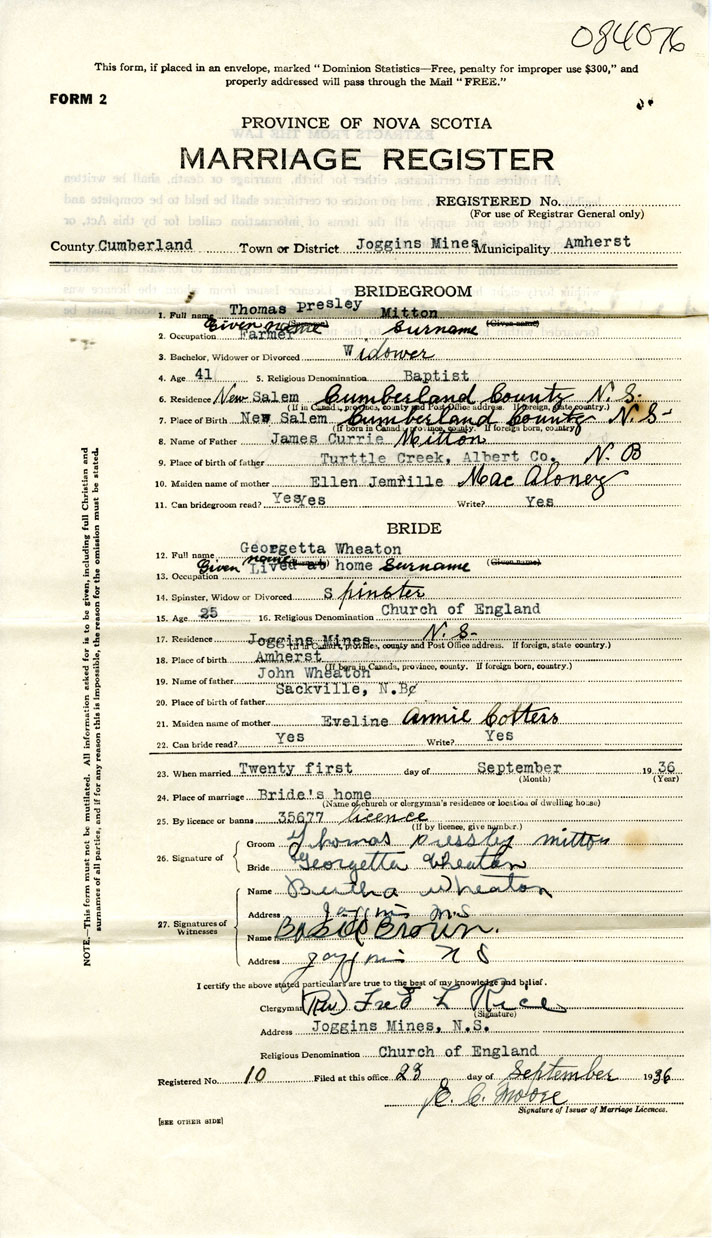 084076
This form, if placed in an envelope, marked "Dominion Statistics—Free, penalty for improper use $300," and
properly addressed will pass through the Mail "FREE."
FORM 2
PROVINCE OF NOVA SCOTIA
MARRIAGE REGISTER
REGISTERED No.
(For use of Registrar General only)
County Cumberland Town or District Joggins Mines Municipality Amherst
BRIDEGROOM
1. Full name Thomas Presley Mitton
Given name Surname (Given name)
2. Occupation Farmer
3. Bachelor, Widower or Divorced Widower
4. Age 41 5. Religious Denomination Baptist
6. Residence New Salem Cumberland County N. S.
(If in Canada, province, county and Post Office address. If foreign, state country.)
7. Place of Birth New Salem Cumberland County N. S-
(If born in Canada, province, county. If foreign born, country)
8. Name of Father James Currie Mitton
9. Place of birth of father Turttle Creek, Albert Co. N. B
10. Maiden name of mother Ellen Jemrille Mac Aloney
11. Can bridegroom read? YesYes Write? Yes
BRIDE
12. Full name Georgetta Wheaton
Given name Surname (Given name)
13. Occupation Lived at home
14. Spinster, Widow or Divorced Spinster
15. Age 25 16. Religious Denomination Church of England
17. Residence Joggins Mines N. S-
(If in Canada, province, county and Post Office address. If foreign, state country.)
18. Place of birth Amherst
(If born in Canada, province, county. If foreign born, country.)
19. Name of father John Wheaton
20. Place of birth of father Sackville, N.B
21. Maiden name of mother Eveline Annie Cotters
22. Can bride read? Yes Write? Yes
23. When married Twenty first day of September 1936
(Month) (Year)
24. Place of marriage Bride's home
(Name of church or clergyman's residence or location of dwelling house)
25. By licence or banns 35677 licence
(If by licence, give number.)
26. Signature of Groom Thomas Pressley Mitton
Bride Georgetta Wheaton
27. Signatures of Witnesses
Name Bertha Wheaton
Address Joggins N S
Name Basil Brown.
Address Joggins N S
I certify the above stated particulars are true to the best of my knowledge and belief.
Clergyman (Rev) Fred L Rice
(Signature)
Address Joggins Mines, N.S.
Religious Denomination Church of England
Registered No. 10 Filed at this office 23 day of September 1936
E. C. Moore
Signature of Issuer of Marriage Licences.
[SEE OTHER SIDE]
NOTE.—This form must not be mutilated. All information asked for is to be given, including full Christian and
surnames of all parties, and if for any reason this is impossible, the reason for the omission must be stated.